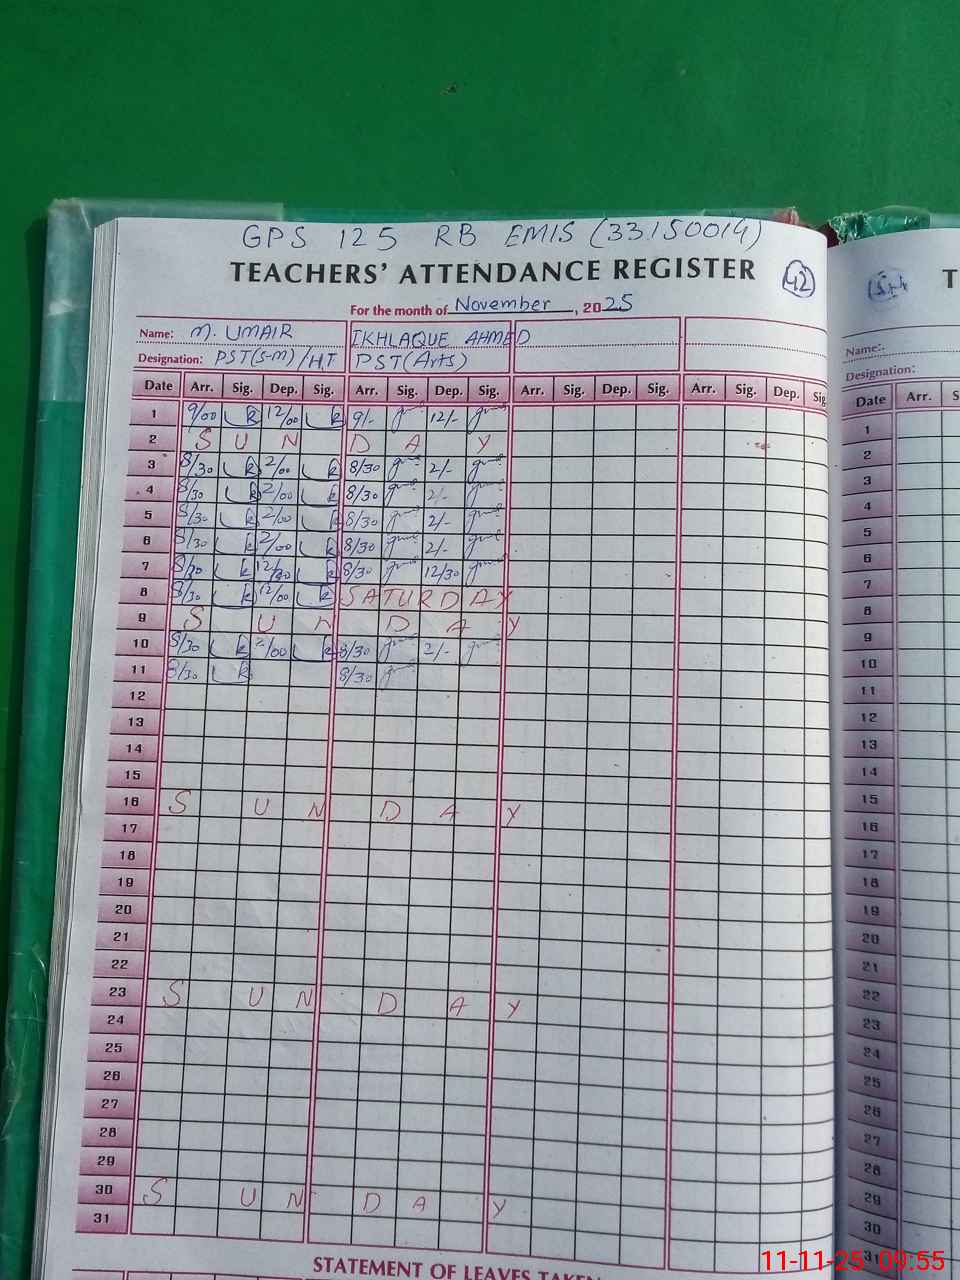 GPS 125 RB EMIS (33150014)
TEACHERS' ATTENDANCE REGISTER
42
For the month of November, 2025
Name: M. UMAIR IKHLAQUE AHMED
Designation: PST(S-M)/H.T PST(Arts)
Date Arr. Sig. Dep. Sig. Arr. Sig. Dep. Sig. Arr. Sig. Dep. Sig. Arr. Sig. Dep. Sig.
1 9/00 12/00 9/- 12/-
2 S U N D A Y
3 8/30 2/00 8/30 2/-
4 8/30 2/00 8/30 2/-
5 8/30 2/00 8/30 2/-
6 8/30 2/00 8/30 2/-
7 8/30 12/30 8/30 12/30
8 8/30 12/00 SATURDAY
9 S U N D A Y
10 8/30 2/00 8/30 2/-
11 8/30 8/30
12
13
14
15
16 S U N D A Y
17
18
19
20
21
22
23 S U N D A Y
24
25
26
27
28
29
30 S U N D A Y
31
STATEMENT OF LEAVES TAKEN
T
Name:
Designation:
Date Arr.
1
2
3
4
5
6
7
8
9
10
11
12
13
14
15
16
17
18
19
20
21
22
23
24
25
26
27
28
29
30
31
11-11-25 09:55